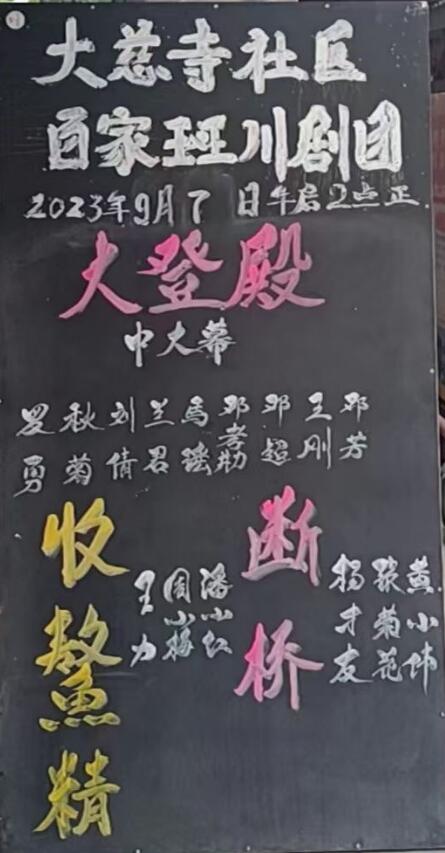 大慈寺社区
百家班川剧团
2023年9月7日午后2点正
大登殿
中大幕
邓芳
王刚
邓超
邓孝勋
馬瑶
兰君
刘倩
秋菊
罗勇
断桥
黄小伟
张菊花
杨才友
收鳌精
潘小红
周小梅
王力